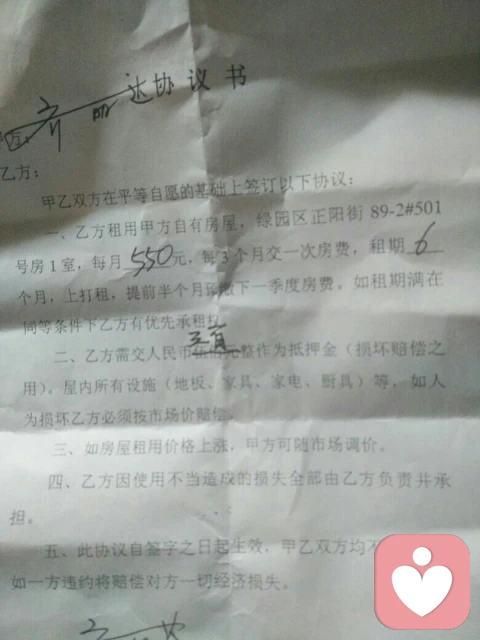 达协议书
甲方：齐丽
乙方：
甲乙双方在平等自愿的基础上签订以下协议：
一、乙方租用甲方自有房屋，绿园区正阳街 89-2#501
号房 1 室，每月 550 元，每 3 个月交一次房费，租期 6
个月，上打租，提前半个月预缴下一季度房费。如租期满在
同等条件下乙方有优先承租权。
二、乙方需交人民币 整作为抵押金（损坏赔偿之
用）。屋内所有设施（地板、家具、家电、厨具）等，如人
为损坏乙方必须按市场价赔偿。
三、如房屋租用价格上涨，甲方可随市场调价。
四、乙方因使用不当造成的损失全部由乙方负责并承
担。
五、此协议自签字之日起生效，甲乙双方均不
如一方违约将赔偿对方一切经济损失。